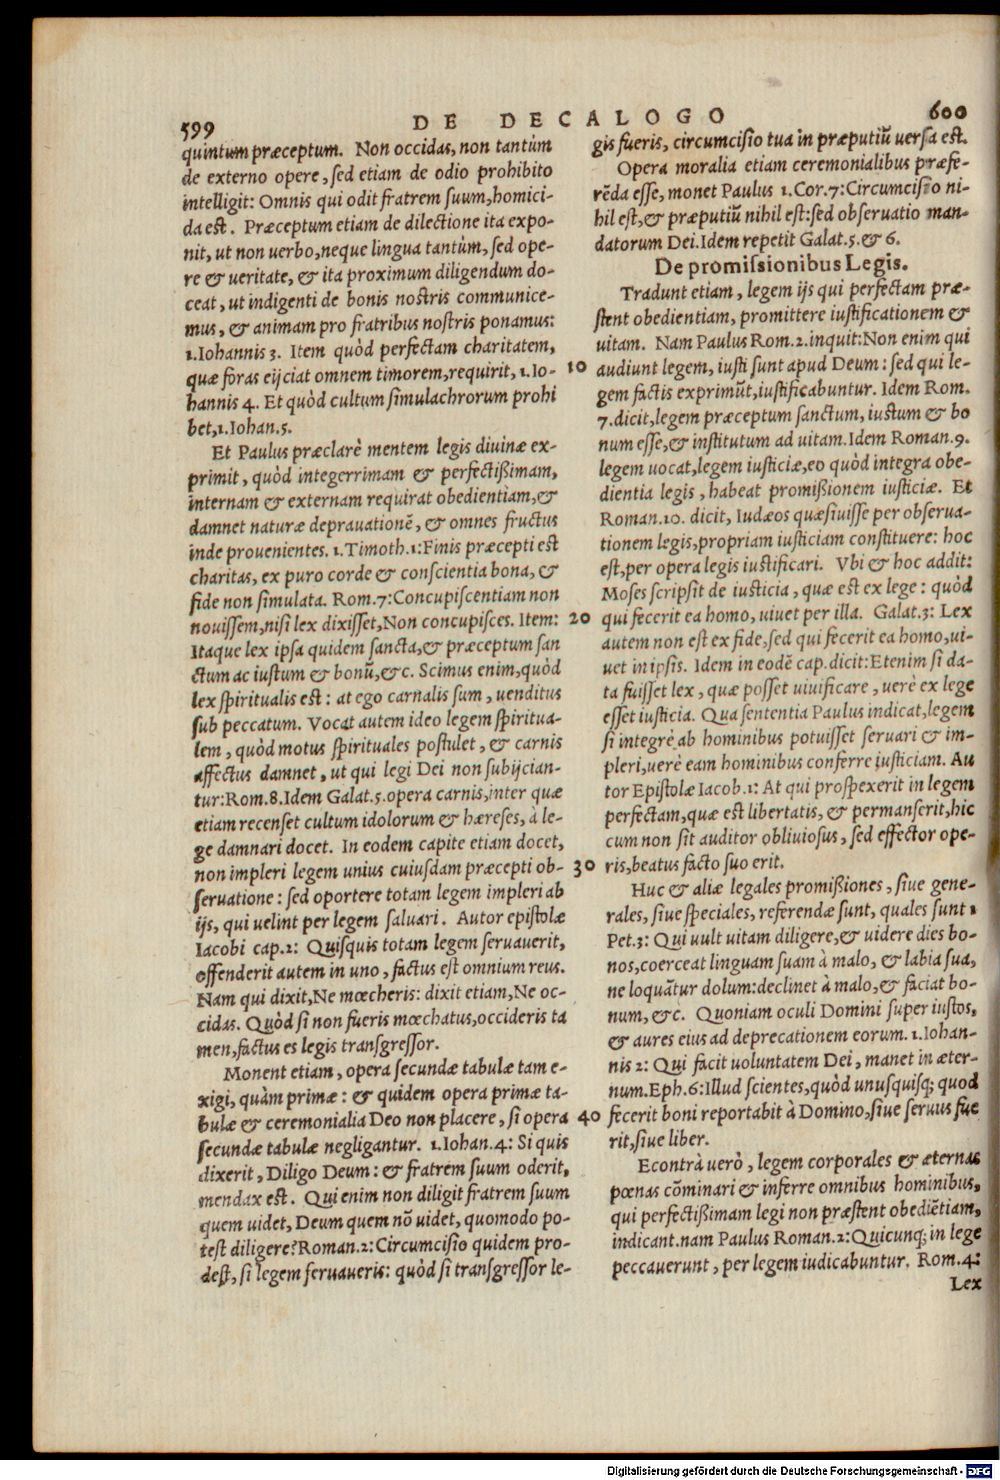 599
DE DECALOGO
600
quintum præceptum. Non occidas, non tantùm
de externo opere, sed etiam de odio prohibito
intelligit: Omnis qui odit fratrem suum, homici-
da est. Præceptum etiam de dilectione ita expo-
nit, ut non uerbo, neque lingua tantùm, sed ope-
re & ueritate, & ita proximum diligendum do-
ceat, ut indigenti de bonis nostris communice-
mus, & animam pro fratribus nostris ponamus:
1.Iohannis 3. Item quòd perfectam charitatem,
quæ foras eijciat omnem timorem, requirit, 1.Io-
hannis 4. Et quòd cultum simulachrorum prohi
bet, 1.Iohan.5.
Et Paulus præclarè mentem legis diuinæ ex-
primit, quòd integerrimam & perfectißimam,
internam & externam requirat obedientiam, &
damnet naturæ deprauationẽ, & omnes fructus
inde prouenientes. 1.Timoth.1: Finis præcepti est
charitas, ex puro corde & conscientia bona, &
fide non simulata. Rom.7: Concupiscentiam non
nouissem, nisi lex dixisset, Non concupisces. Item:
Itaque lex ipsa quidem sancta, & præceptum san
ctum ac iustum & bonũ, &c. Scimus enim, quòd
lex spiritualis est: at ego carnalis sum, uenditus
sub peccatum. Vocat autem ideo legem spiritua-
lem, quòd motus spirituales postulet, & carnis
affectus damnet, ut qui legi Dei non subijcian-
tur: Rom.8. Idem Galat.5. opera carnis, inter quæ
etiam recenset cultum idolorum & hæreses, à le-
ge damnari docet. In eodem capite etiam docet,
non impleri legem unius cuiusdam præcepti ob-
seruatione: sed oportere totam legem impleri ab
ijs, qui uelint per legem saluari. Autor epistolæ
Iacobi cap.2: Quisquis totam legem seruauerit,
offenderit autem in uno, factus est omnium reus.
Nam qui dixit, Ne mœcheris: dixit etiam, Ne oc-
cidas. Quòd si non fueris mœchatus, occideris ta
men, factus es legis transgressor.
Monent etiam, opera secundæ tabulæ tam e-
xigi, quàm primæ: & quidem opera primæ ta-
bulæ & ceremonialia Deo non placere, si opera
secundæ tabulæ negligantur. 1.Iohan.4: Si quis
dixerit, Diligo Deum: & fratrem suum oderit,
mendax est. Qui enim non diligit fratrem suum
quem uidet, Deum quem nõ uidet, quomodo po-
test diligere? Roman.2: Circumcisio quidem pro-
dest, si legem seruaueris: quòd si transgressor le-
10
20
30
40
gis fueris, circumcisio tua in præputiũ uersa est.
Opera moralia etiam ceremonialibus præfe-
rẽda esse, monet Paulus 1.Cor.7: Circumcisio ni-
hil est, & præputiũ nihil est: sed obseruatio man-
datorum Dei. Idem repetit Galat.5. & 6.
De promissionibus Legis.
Tradunt etiam, legem ijs qui perfectam præ-
stent obedientiam, promittere iustificationem &
uitam. Nam Paulus Rom.2. inquit: Non enim qui
audiunt legem, iusti sunt apud Deum: sed qui le-
gem factis exprimũt, iustificabuntur. Idem Rom.
7. dicit, legem præceptum sanctum, iustum & bo
num esse, & institutum ad uitam. Idem Roman.9.
legem uocat, legem iusticiæ, eo quòd integra obe-
dientia legis, habeat promißionem iusticiæ. Et
Roman.10. dicit, Iudæos quæsiuisse per obserua-
tionem legis, propriam iusticiam constituere: hoc
est, per opera legis iustificari. Vbi & hoc addit:
Moses scripsit de iusticia, quæ est ex lege: quòd
qui fecerit ea homo, uiuet per illa. Galat.3: Lex
autem non est ex fide, sed qui fecerit ea homo, ui-
uet in ipsis. Idem in eodẽ cap. dicit: Etenim si da-
ta fuisset lex, quæ posset uiuificare, uerè ex lege
esset iusticia. Qua sententia Paulus indicat, legem
si integrè ab hominibus potuisset seruari & im-
pleri, uerè eam hominibus conferre iusticiam. Au
tor Epistolæ Iacob.1: At qui prospexerit in legem
perfectam, quæ est libertatis, & permanserit, hic
cum non sit auditor obliuiosus, sed effector ope-
ris, beatus facto suo erit.
Huc & aliæ legales promißiones, siue gene-
rales, siue speciales, referendæ sunt, quales sunt 1
Pet.3: Qui uult uitam diligere, & uidere dies bo-
nos, coerceat linguam suam à malo, & labia sua,
ne loquãtur dolum: declinet à malo, & faciat bo-
num, &c. Quoniam oculi Domini super iustos,
& aures eius ad deprecationem eorum. 1.Iohan-
nis 2: Qui facit uoluntatem Dei, manet in æter-
num. Eph.6: Illud scientes, quòd unusquisq; quod
fecerit boni reportabit à Domino, siue seruus fue
rit, siue liber.
Econtrà uerò, legem corporales & æternas
pœnas cõminari & inferre omnibus hominibus,
qui perfectißimam legi non præstent obediẽtiam,
indicant. nam Paulus Roman.2: Quicunq; in lege
peccauerunt, per legem iudicabuntur. Rom.4:
Lex
Digitalisierung gefördert durch die Deutsche Forschungsgemeinschaft - DFG